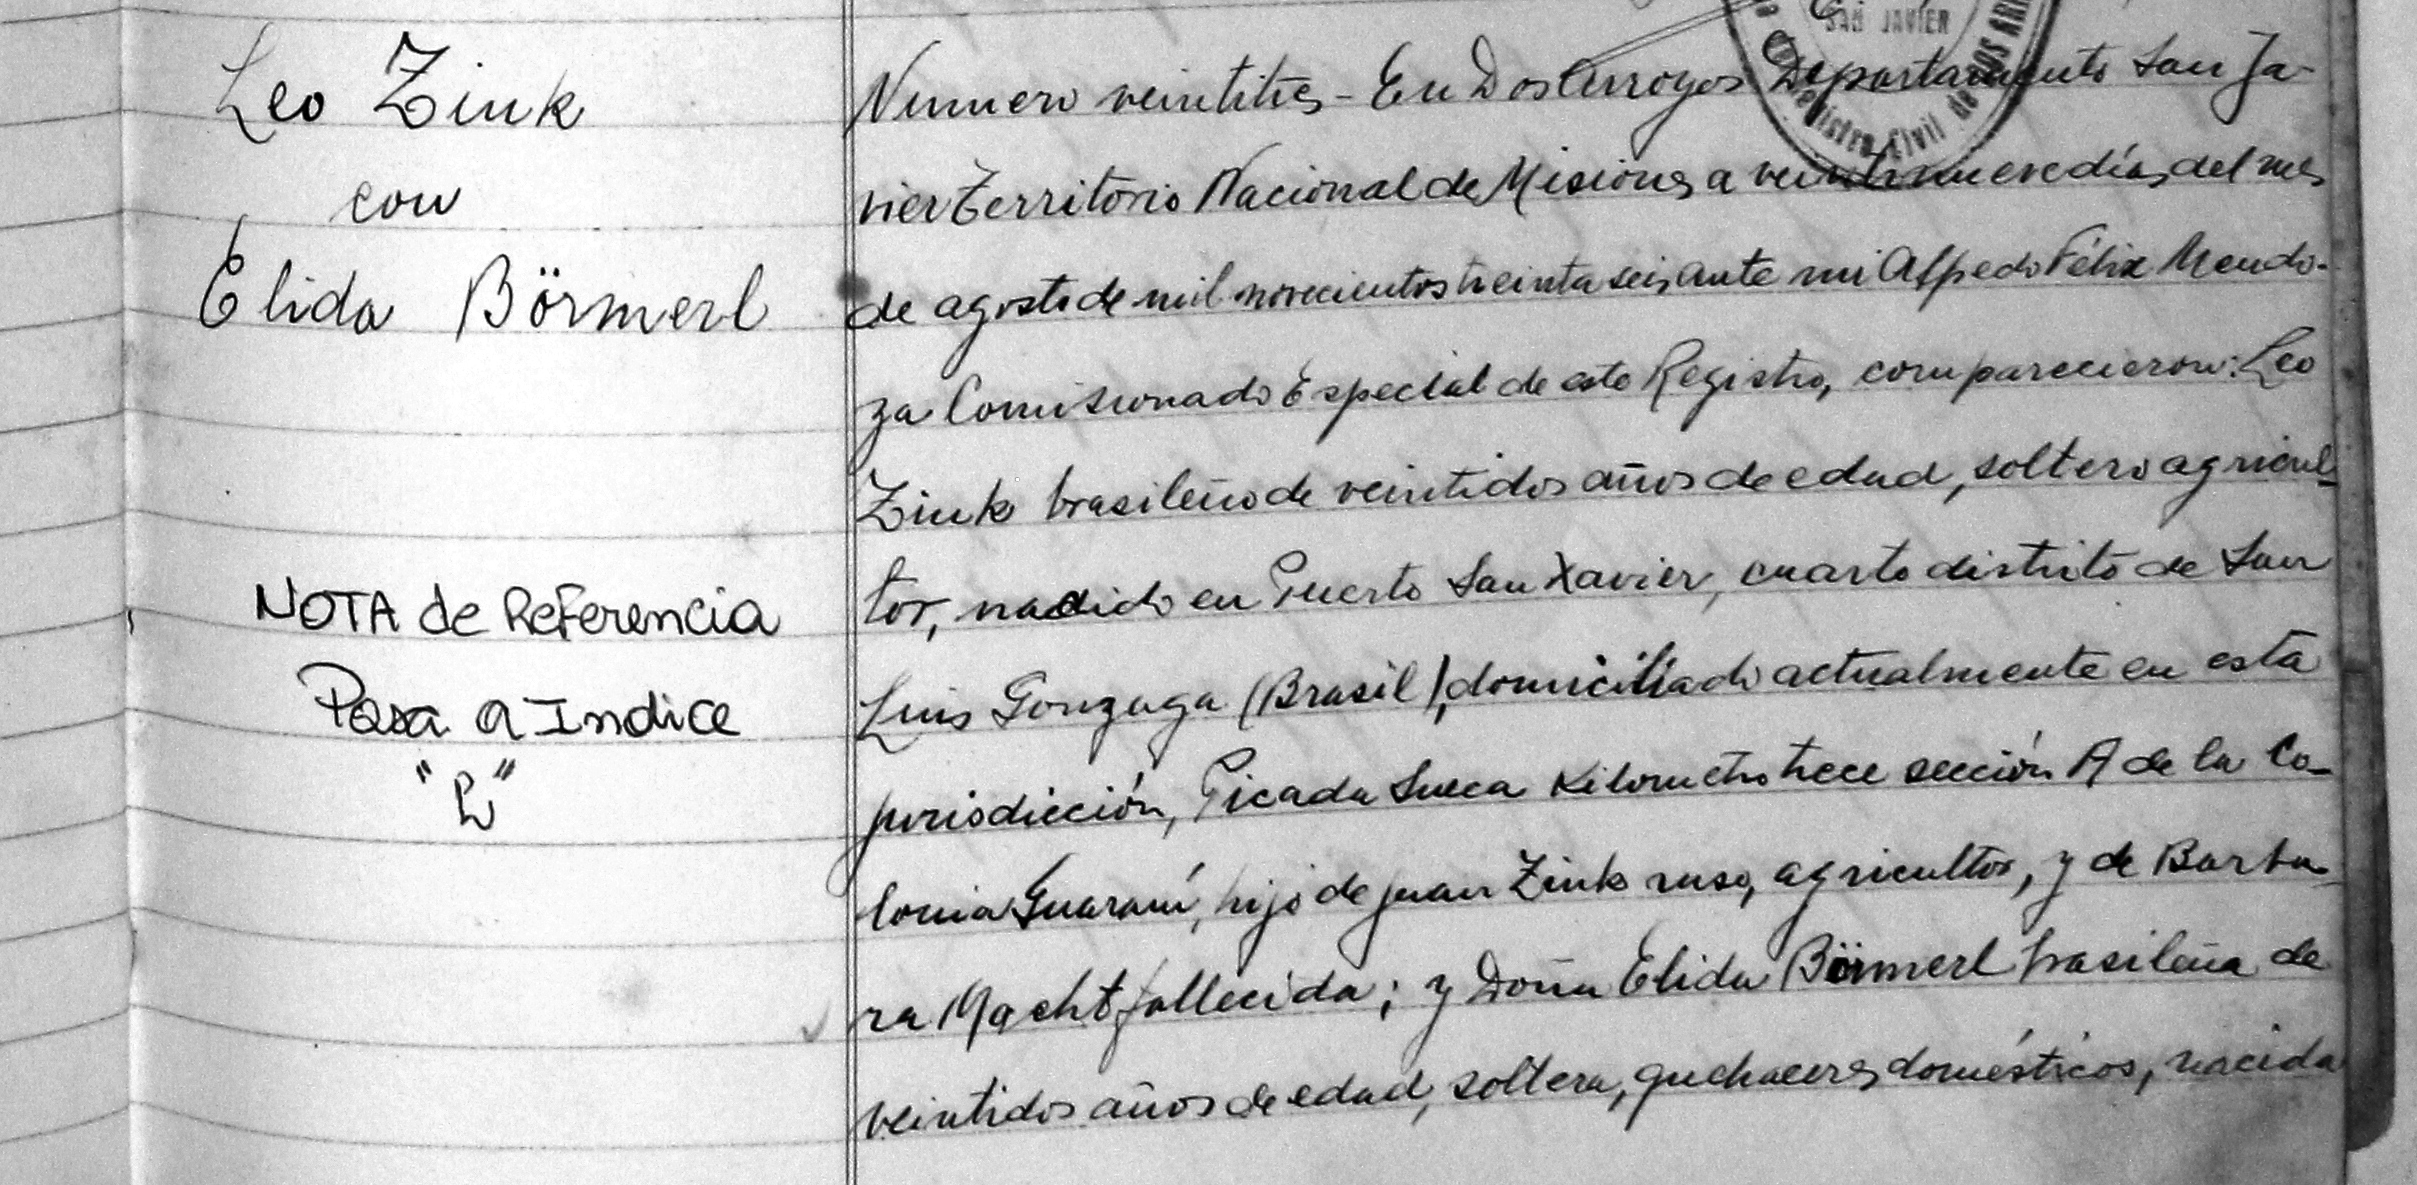 Leo Zink
con
Elida Börmerl
NOTA de Referencia
Pasa a Indice
"L"
SAN JAVIER
Registro Civil de DOS
Numero veintitres - En Dos Arroyos Departamento San Ja-
vier Territorio Nacional de Misiones a veintinueve días del mes
de agosto de mil novecientos treinta seis, ante mi Alfredo Félix Mendo-
za Comisionado Especial de este Registro, comparecieron: Leo
Zink brasileño de veintidos años de edad, soltero agricul-
tor, nacido en Puerto San Xavier, cuarto distrito de San
Luis Gonzaga (Brasil), domiciliado actualmente en esta
jurisdicción, Picada Sueca Kilometro trece sección A de la Co-
lonia Guaraní, hijo de Juan Zink ruso, agricultor, y de Barba-
ra Macht fallecida; y Doña Elida Börmerl brasileña de
veintidos años de edad, soltera, quehaceres domésticos, nacida